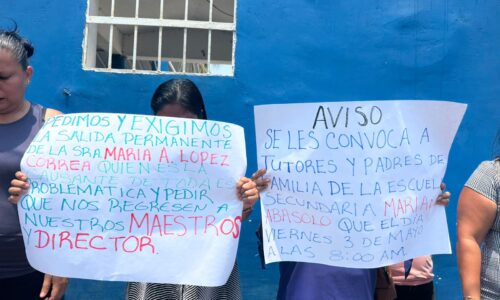 PEDIMOS Y EXIGIMOS
LA SALIDA PERMANENTE
DE LA SRA. MARIA A. LOPEZ
CORREA QUIEN ES LA
DE TODA ES
PROBLEMATICA Y PEDIR
QUE NOS REGRESEN A
NUESTROS MAESTROS
Y DIRECTOR.
AVISO
SE LES CONVOCA A
TUTORES Y PADRES DE
FAMILIA DE LA ESCUEL
SECUNDARIA MARIAN
ABASOLO QUE EL DIA
VIERNES 3 DE MAYO
A LAS 8:00 AM.